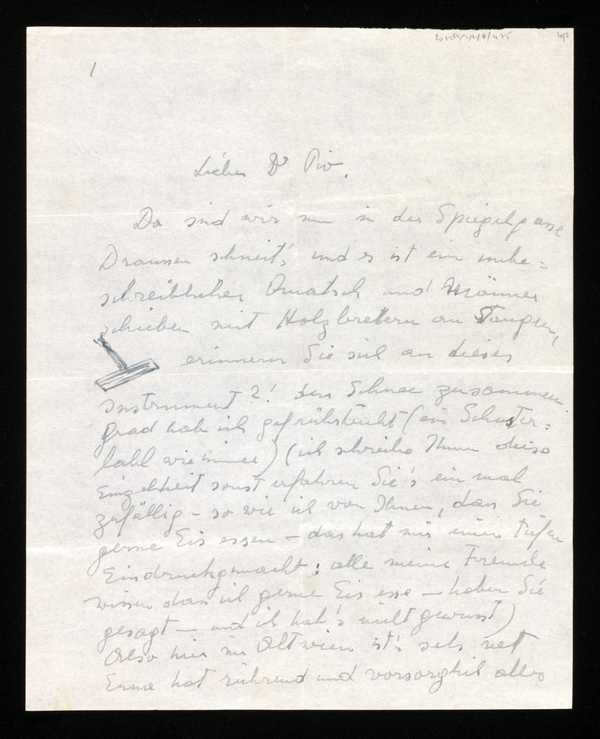 1
Lieber Dr Piv.
Da sind wir nun in der Spiegelgasse
Draussen schneit's, und es ist ein unbe=
schreiblicher Quatsch und Männer
schieben mit Holzbrettern an Stangen,
erinnern Sie sich an dieses
Instrument?! den Schnee zusammen.
Grad hab ich gefrühstückt (ein
wie immer) (ich schreibe Ihnen diese
Einzelheit sonst erfahren Sie's ein mal
zufällig – so wie ich von Ihnen, dass Sie
gerne Eis essen – das hat mir einen tiefen
Eindruck gemacht: alle meine Freunde
wissen dass ich gerne Eis esse – haben Sie
gesagt – und ich hab's nicht gewusst)
Also hier in Altwien ist's sehr nett
Erne hat rührend und vorsorglich alles